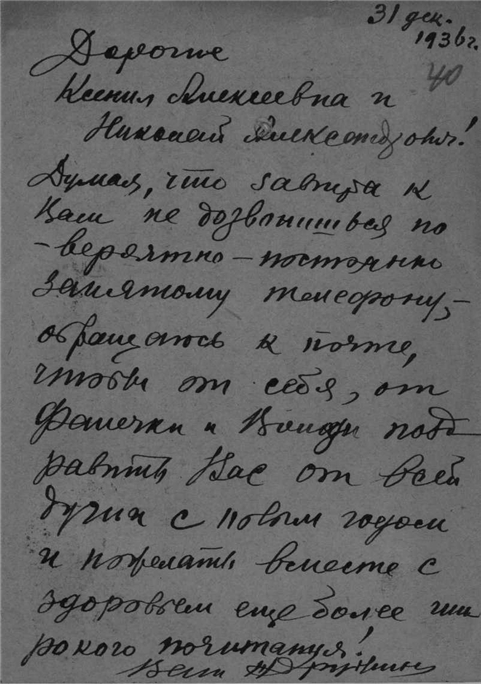 31 дек.
1936 г.
40
Дорогие
Ксения Алексеевна и
Николай Александрович!
Думая, что завтра к
Вам не дозвонишься по
- вероятно - постоянно
занятому телефону, -
обращаюсь к почте,
чтобы от себя, от
Фанечки и позд
равить Вас от всей
души с новым годом
и пожелать вместе с
здоровьем еще более ши
рокого почитания!
Ваш